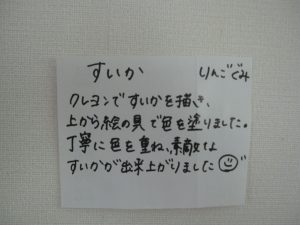 すいか りんごぐみ
クレヨンですいかを描き、
上から絵の具で色を塗りました。
丁寧に色を重ね、素敵な
すいかが出来上がりました